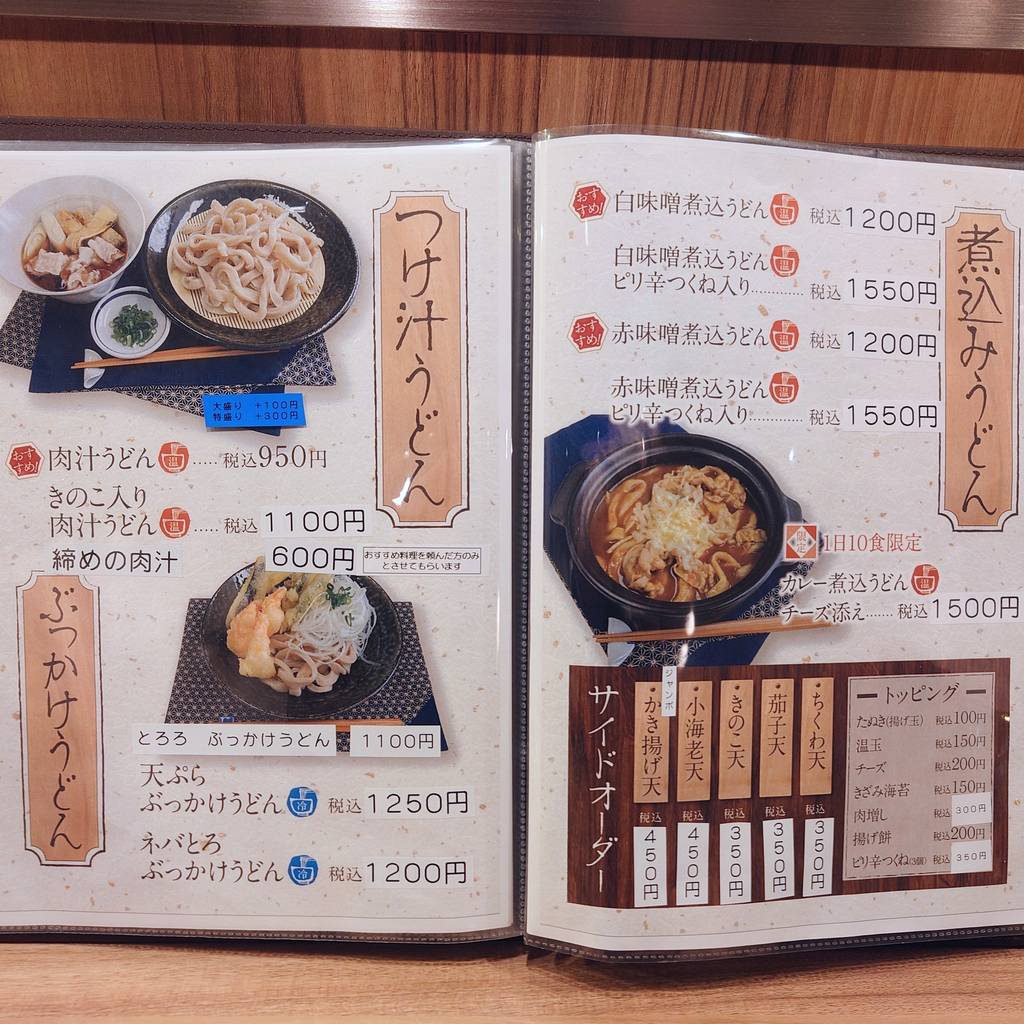 つけ汁うどん
大盛り +100円
特盛り +300円
おすすめ! 肉汁うどん 温 ..... 税込950円
きのこ入り
肉汁うどん 温 ..... 税込1100円
締めの肉汁 600円
おすすめ料理を頼んだ方のみ
とさせてもらいます
ぶっかけうどん
とろろ ぶっかけうどん 1100円
天ぷら
ぶっかけうどん 冷 税込1250円
ネバとろ
ぶっかけうどん 冷 税込1200円
煮込みうどん
おすすめ! 白味噌煮込うどん 温 税込1200円
白味噌煮込うどん 温
ピリ辛つくね入り............ 税込1550円
おすすめ! 赤味噌煮込うどん 温 税込1200円
赤味噌煮込うどん 温
ピリ辛つくね入り............ 税込1550円
限定 1日10食限定
カレー煮込うどん 温
チーズ添え....... 税込1500円
サイドオーダー
ジャンボ
かき揚げ天 税込450円
小海老天 税込450円
きのこ天 税込350円
茄子天 税込350円
ちくわ天 税込350円
トッピング
たぬき(揚げ玉) 税込100円
温玉 税込150円
チーズ 税込200円
きざみ海苔 税込150円
肉増し 税込300円
揚げ餅 税込200円
ピリ辛つくね(3個) 税込350円